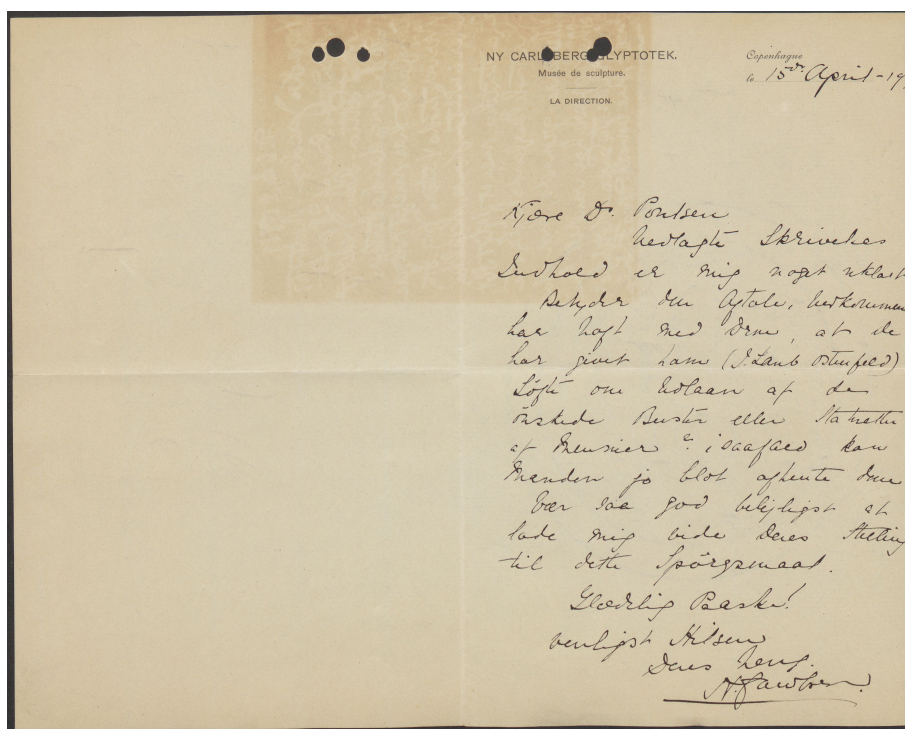 NY CARLSBERG GLYPTOTEK.
Musée de sculpture.
LA DIRECTION.
Copenhague
le 15de April - 19
Kjære Dr. Poulsen
Vedlagte Skrivelses
Indhold er mig noget uklart
Betyder den Aftale, Vedkommen
har haft med Dem, at De
har givet ham (J. Laub Ostenfeld)
Løfte om Udlaan af de
ønskede Buster eller Statuette
af Meunier? i saafald kan
Manden jo blot afhente dem
Vær saa god belejligst at
lade mig vide Deres Stilling
til dette Spørgsmaal.
Glædelig Paaske!
venligst Hilsen
Deres heng.